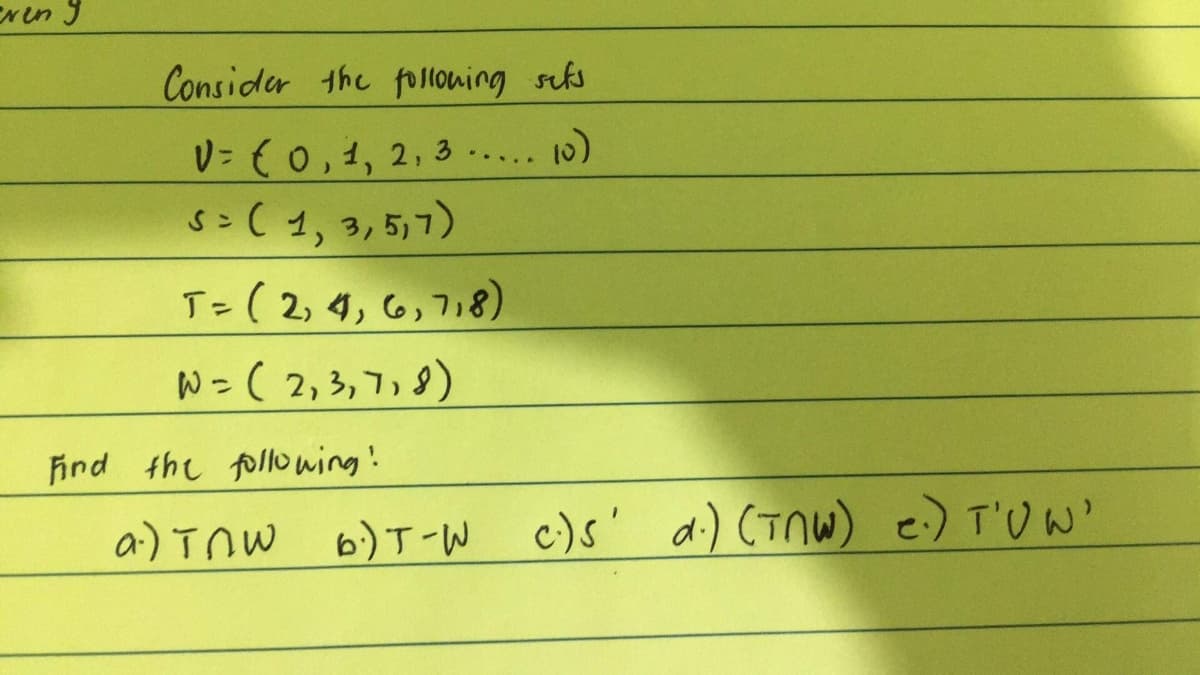 Consider the following sets
U = { 0, 1, 2, 3 ..... 10)
S = ( 1, 3, 5, 7)
T = ( 2, 4, 6, 7, 8)
W = ( 2, 3, 7, 8)
Find the following:
a.) T∩W b.) T-W c.) S' d.) (T∩W) e.) T'U W'